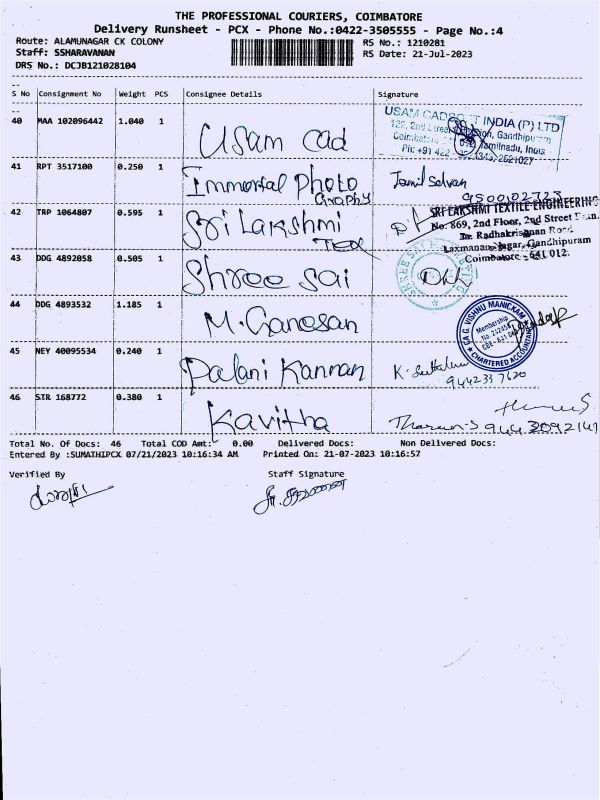 THE PROFESSIONAL COURIERS, COIMBATORE
Delivery Runsheet - PCX - Phone No.:0422-3505555 - Page No.:4
Route: ALAMUNAGAR CK COLONY
RS No.: 1210281
Staff: SSHARAVANAN
RS Date: 21-Jul-2023
DRS No.: DCJB121028104
S No Consignment No Weight PCS Consignee Details Signature
40 MAA 102096442 1.040 1 Usam cad
USAM CADSOFT INDIA (P) LTD
122, 2nd Street, Gandhipuram
Coimbatore Tamilnadu, India
Ph: +91 422 2521027
41 RPT 3517100 0.250 1 Immortal Photo Graphy Tamil Selvan
9500102723
42 TRP 1064807 0.595 1 Sri Lakshmi Tex
SRI LAKSHMI TEXTILE ENGINEERING
No: 869, 2nd Floor, 2nd Street Extn.
Dr. Radhakrishnan Road
Laxmanan Nagar, Gandhipuram
Coimbatore - 641 012.
43 DDG 4892058 0.505 1 Shree sai
SHREE SAI
44 DDG 4893532 1.185 1 M. Ganesan
CA G. VISHNU MANICKAM
Membership
CHARTERED ACCOUNTANT
45 NEY 40095534 0.240 1 Palani Kannan
9442337620
46 STR 168772 0.380 1 Kavitha
Tharun-S 9443092149
Total No. Of Docs: 46 Total COD Amt: 0.00 Delivered Docs: Non Delivered Docs:
Entered By :SUMATHIPCX 07/21/2023 10:16:34 AM Printed On: 21-07-2023 10:16:57
Verified By Staff Signature